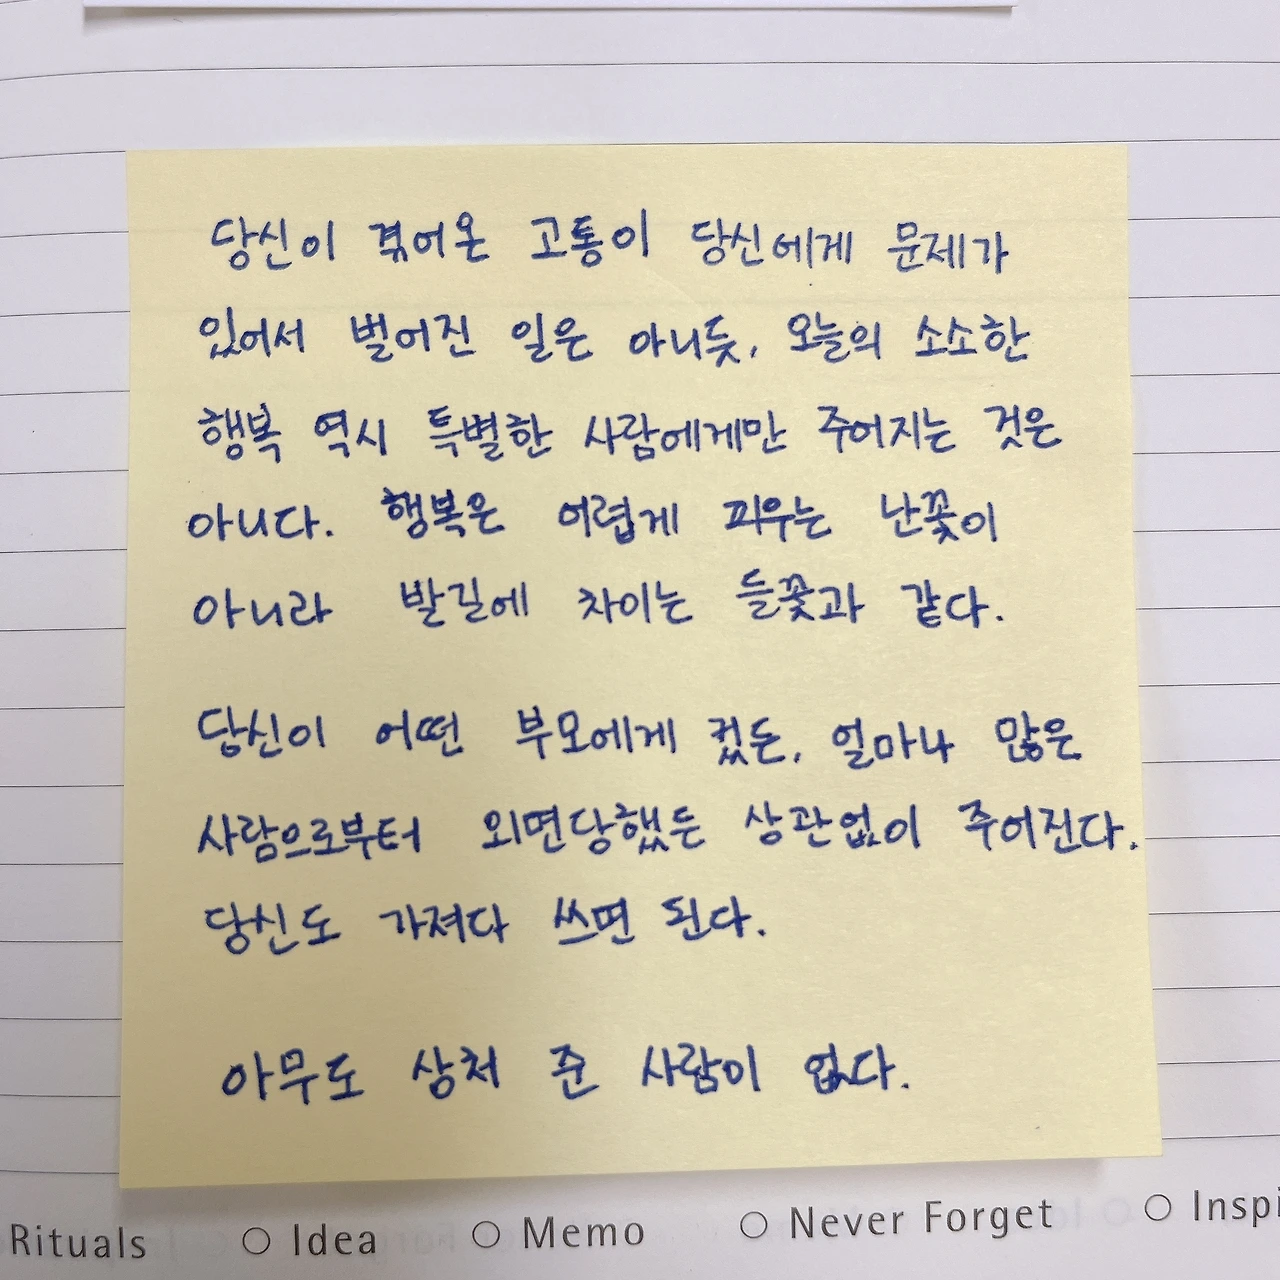 당신이 겪어온 고통이 당신에게 문제가
있어서 벌어진 일은 아니듯, 오늘의 소소한
행복 역시 특별한 사람에게만 주어지는 것은
아니다. 행복은 어렵게 피우는 난꽃이
아니라 발길에 차이는 들꽃과 같다.
당신이 어떤 부모에게 컸든, 얼마나 많은
사람으로부터 외면당했든 상관없이 주어진다.
당신도 가져다 쓰면 된다.
아무도 상처 준 사람이 없다.
Rituals ○ Idea ○ Memo ○ Never Forget ○ Inspi